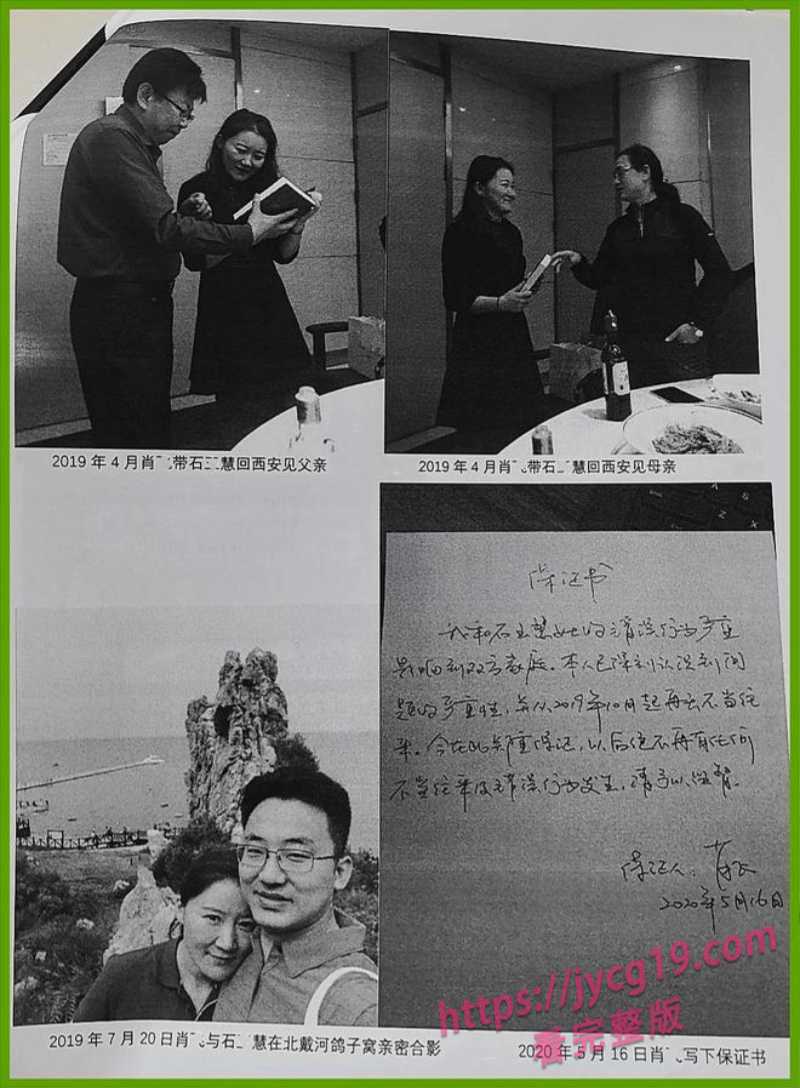 2019 年 4 月肖带石慧回西安见父亲
2019 年 4 月肖带石慧回西安见母亲
保证书
我和石慧女士的错误行为严重
影响到双方家庭。本人已深刻认识到问
题的严重性,并从2019年10月起再无不当往
来。今在此郑重保证,以后绝不再有任何
不当往来及错误行为发生,请予以监督。
保证人:肖
2020年5月16日
2019 年 7 月 20 日肖与石慧在北戴河鸽子窝亲密合影
2020 年 5 月 16 日肖写下保证书
https://jycg19.com
看完整版